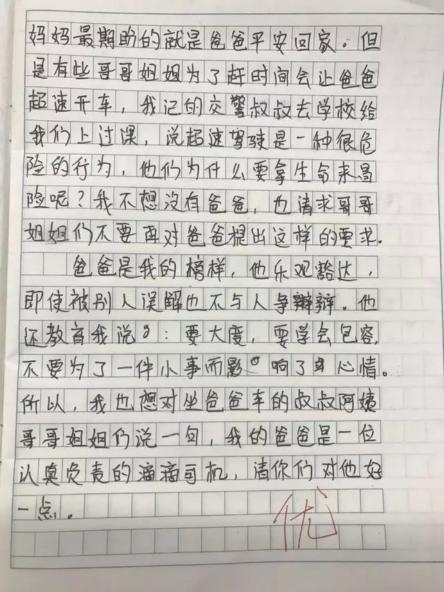 妈妈最期盼的就是爸爸平安回家。但
是有些哥哥姐姐为了赶时间会让爸爸
超速开车，我记的交警叔叔去学校给
我们上过课，说超速驾驶是一种很危
险的行为，他们为什么要拿生命来冒
险呢？我不想没有爸爸，也请求哥哥
姐姐们不要再对爸爸提出这样的要求.
爸爸是我的榜样，他乐观豁达，
即使被别人误解也不与人争辩。他
还教育我说：要大度，要学会包容，
不要为了一件小事而影响了心情。
所以，我也想对坐爸爸车的叔叔阿姨
哥哥姐姐们说一句，我的爸爸是一位
认真负责的滴滴司机，请你们对他好
一点。
优